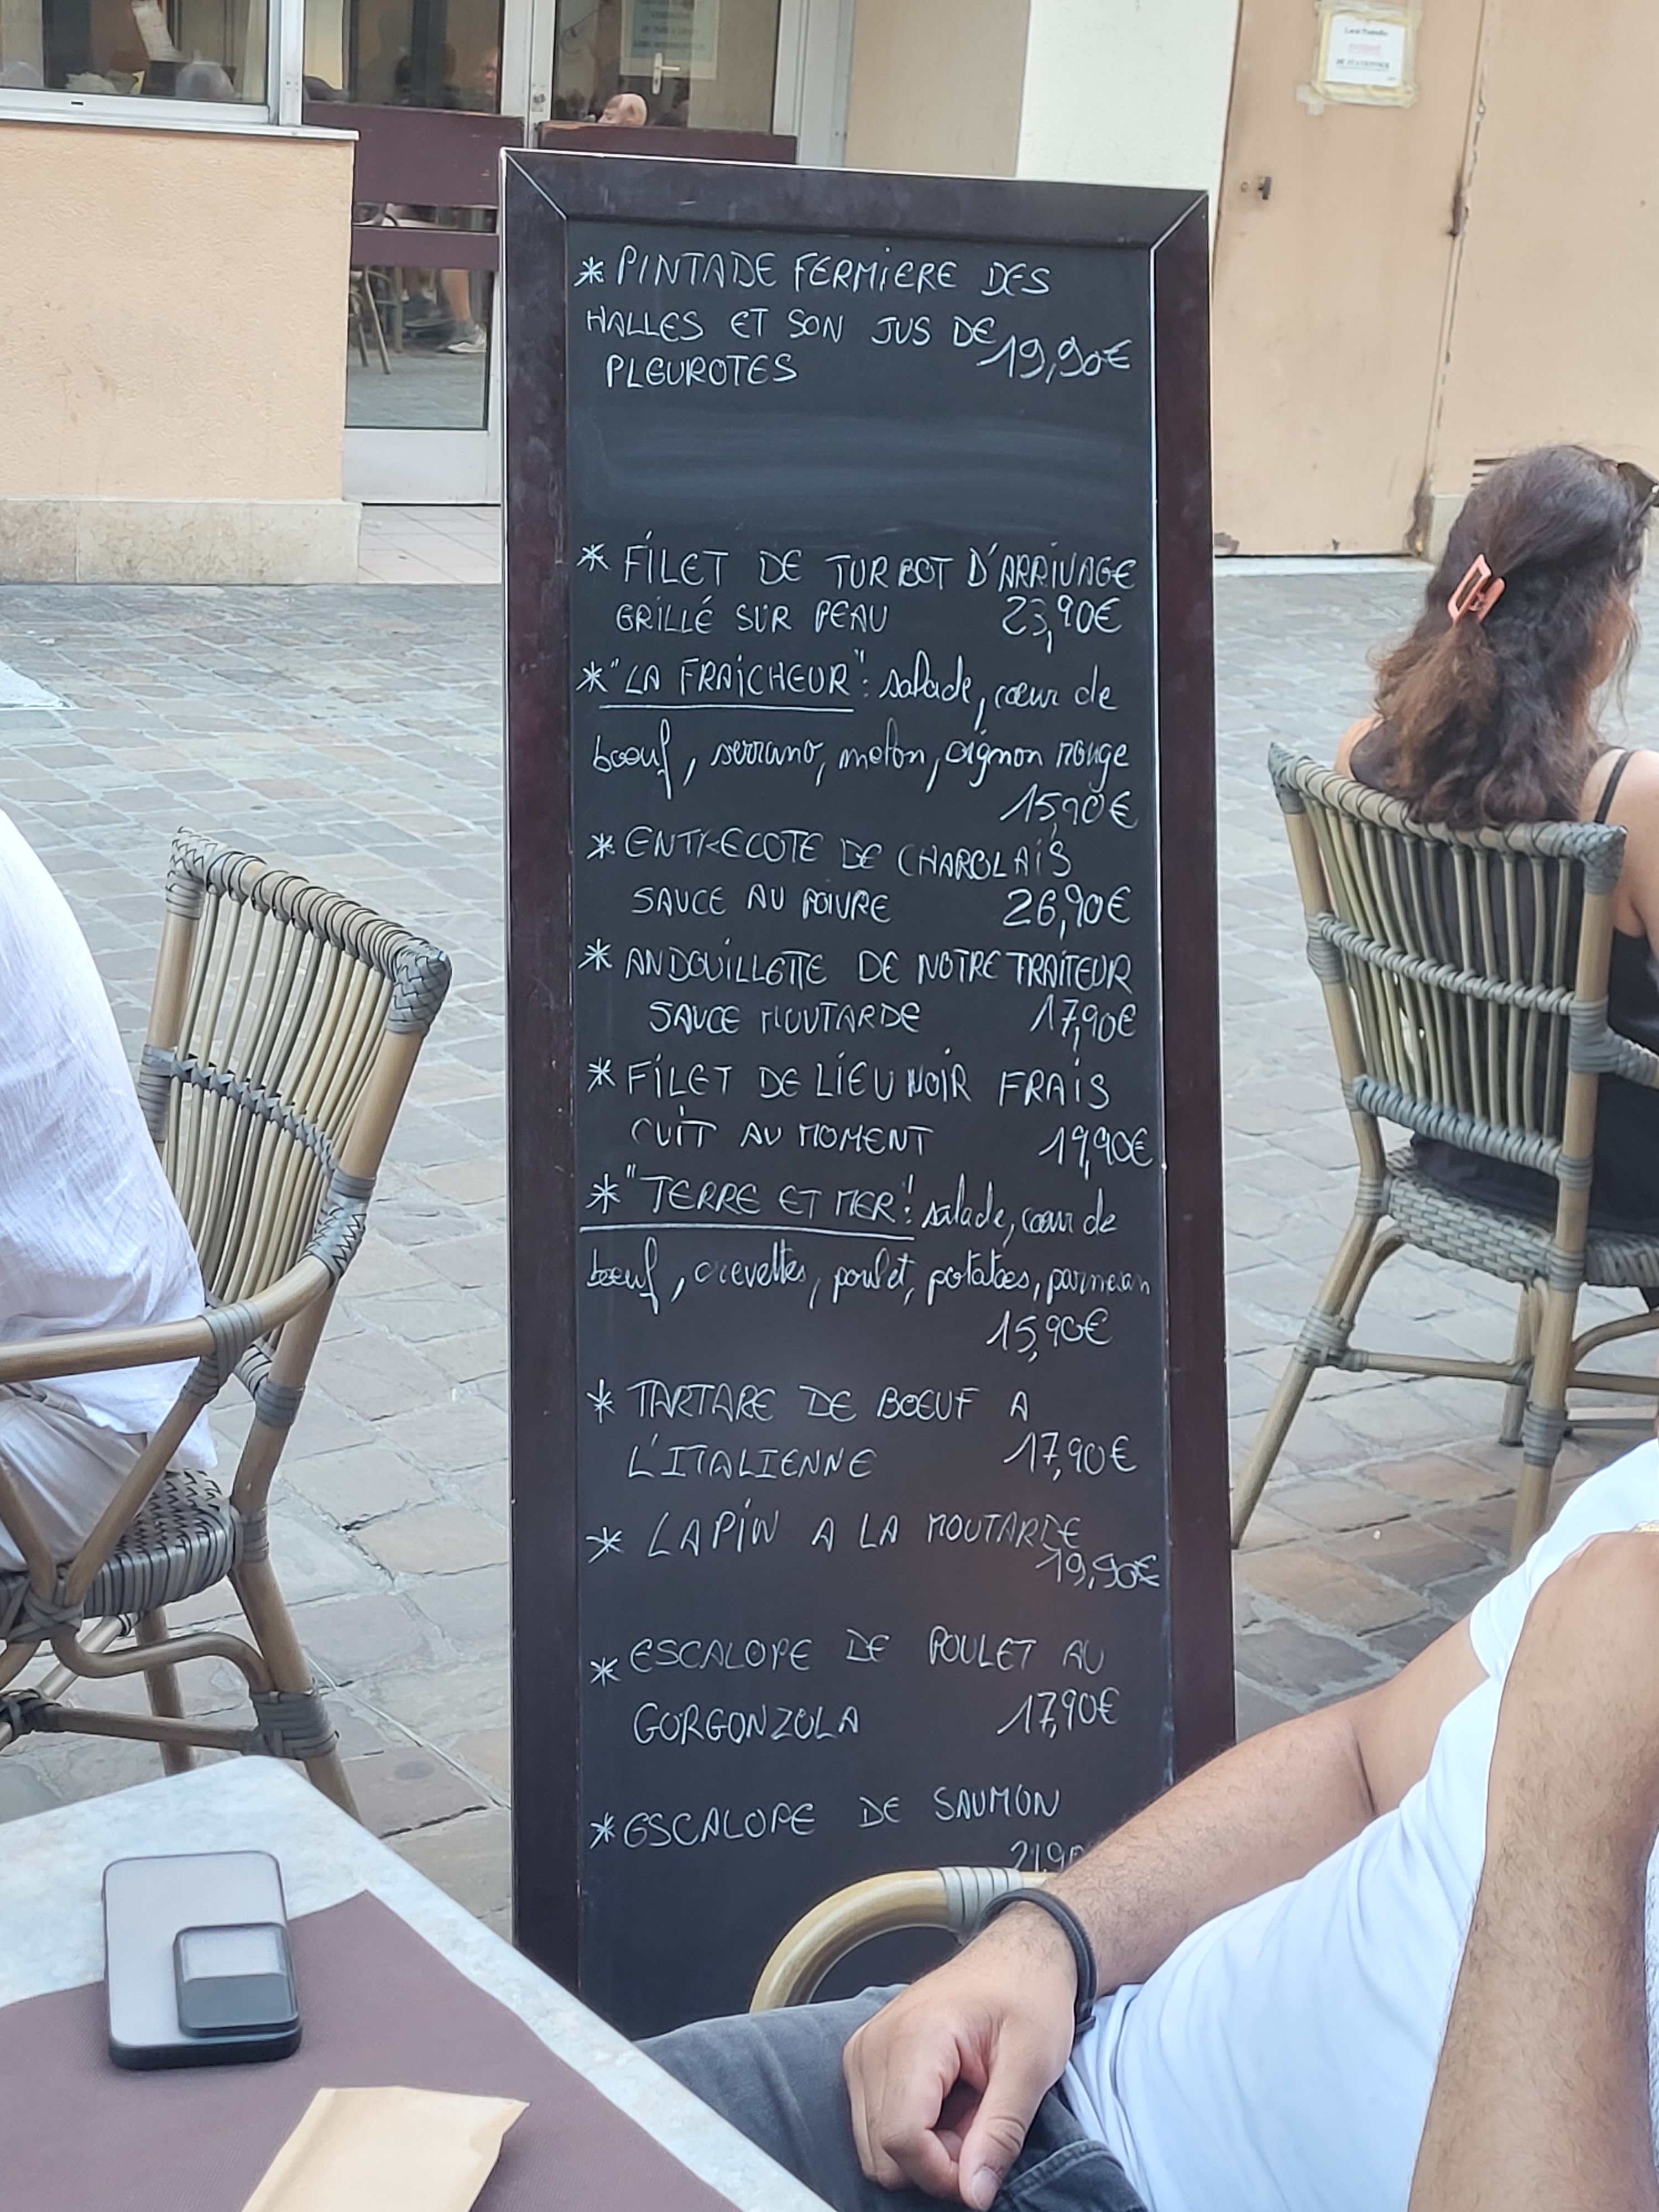 * PINTADE FERMIERE DES
HALLES ET SON JUS DE 19,90€
PLEUROTES
* FILET DE TURBOT D'ARRIVAGE
GRILLÉ SUR PEAU 23,90€
* "LA FRAICHEUR": salade, cœur de
bœuf, serrano, melon, oignon rouge
15,90€
* ENTRECOTE DE CHAROLAIS
SAUCE AU POIVRE 26,90€
* ANDOUILLETTE DE NOTRE TRAITEUR
SAUCE MOUTARDE 17,90€
* FILET DE LIEU NOIR FRAIS
CUIT AU MOMENT 19,90€
* "TERRE ET MER": salade, cœur de
bœuf, crevettes, poulet, potatoes, parmesan
15,90€
* TARTARE DE BŒUF A
L'ITALIENNE 17,90€
* LAPIN A LA MOUTARDE
19,90€
* ESCALOPE DE POULET AU
GORGONZOLA 17,90€
* ESCALOPE DE SAUMON
21,90